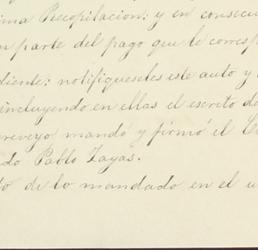 ima Recopilacion: y en consecu
n parte del pago que le corresp
diente: notifiqueseles este auto y
incluyendo en ellas el escreto de
preveyo mandó y firmó el
do Pablo Zayas.
to de lo mandado en el